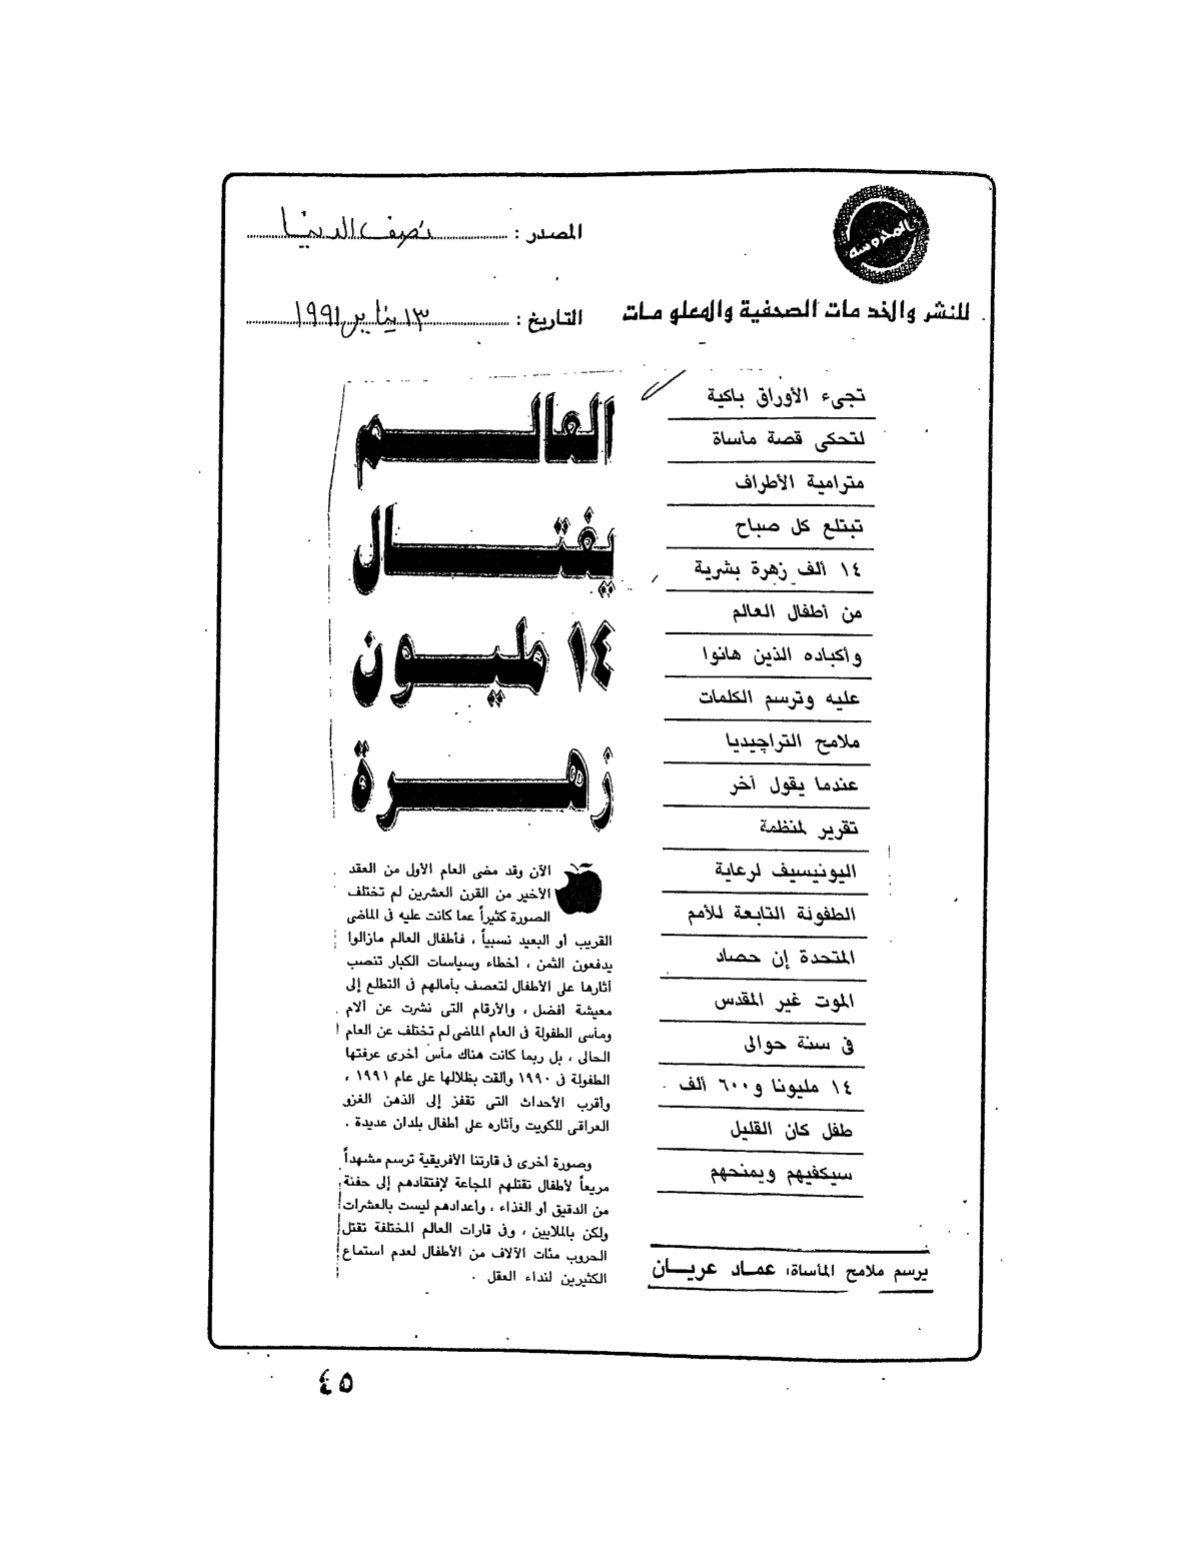 المحروسة
المصدر : نصف الدنيا
للنشر والخدمات الصحفية والمعلومات
التاريخ : ١٣ يناير ١٩٩١
تجىء الأوراق باكية
لتحكى قصة مأساة
مترامية الأطراف
تبتلع كل صباح
١٤ ألف زهرة بشرية
من أطفال العالم
وأكباده الذين هانوا
عليه وترسم الكلمات
ملامح التراچيديا
عندما يقول أخر
تقرير لمنظمة
اليونيسيف لرعاية
الطفولة التابعة للأمم
المتحدة إن حصاد
الموت غير المقدس
فى سنة حوالى
١٤ مليونا و٦٠٠ ألف
طفل كان القليل
سيكفيهم ويمنحهم
يرسم ملامح المأساة: عمـاد عريــان
العالــم
يغتــال
١٤ مليــون
زهــرة
الآن وقد مضى العام الأول من العقد
الأخير من القرن العشرين لم تختلف
الصورة كثيراً عما كانت عليه فى الماضى
القريب أو البعيد نسبياً ، فأطفال العالم مازالوا
يدفعون الثمن ، أخطاء وسياسات الكبار تنصب
آثارها على الأطفال لتعصف بآمالهم فى التطلع إلى
معيشة أفضل ، والأرقام التى نشرت عن آلام
ومآسى الطفولة فى العام الماضى لم تختلف عن العام
الحالى ، بل ربما كانت هناك مآس أخرى عرفتها
الطفولة فى ١٩٩٠ وألقت بظلالها على عام ١٩٩١ ،
وأقرب الأحداث التى تقفز إلى الذهن الغزو
العراقى للكويت وآثاره على أطفال بلدان عديدة .
وصورة أخرى فى قارتنا الأفريقية ترسم مشهداً
مريعاً لأطفال تقتلهم المجاعة لإفتقادهم إلى حفنة
من الدقيق أو الغذاء ، وأعدادهم ليست بالعشرات
ولكن بالملايين ، وفى قارات العالم المختلفة تقتل
الحروب مئات الآلاف من الأطفال لعدم استماع
الكثيرين لنداء العقل .
٤٥